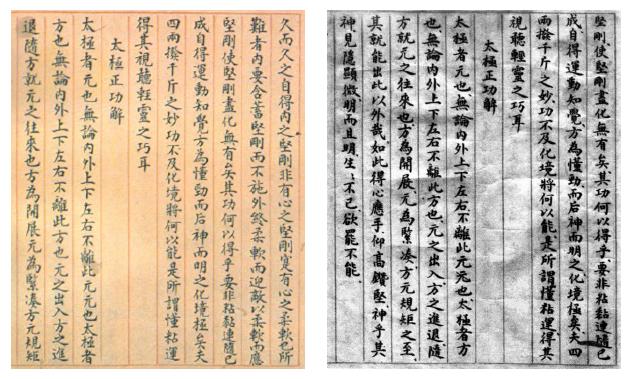 久而久之自得內之堅剛非有心之堅剛實有心之柔軟也所
難者內要含蓄堅剛而不施外終柔軟而迎敵以柔軟而應
堅剛使堅剛盡化無有矣其功何以得乎要非粘黏連隨已
成自得運動知覺方為懂勁而后神而明之化境極矣夫
四兩撥千斤之妙功不及化境將何以能是所謂懂粘運
得其視聽輕靈之巧耳
太極正功解
太極者元也無論內外上下左右不離此元元也太極者
方也無論內外上下左右不離此方也元之出入方之進
退隨方就元之往來也方為開展元為緊湊方元規矩
堅剛使堅剛盡化無有矣其功何以得乎要非粘黏連隨已
成自得運動知覺方為懂勁而后神而明之化境極矣夫四
兩撥千斤之妙功不及化境將何以能是所謂懂粘運得其
視聽輕靈之巧耳
太極正功解
太極者元也無論內外上下左右不離此元元也太極者方
也無論內外上下左右不離此方也元之出入方之進退隨
方就元之往來也方為開展元為緊湊方元規矩之至
其就能出此以外哉如此得心應手仰高鑽堅神乎其
神見隱顯微明而且明生生不已欲罷不能